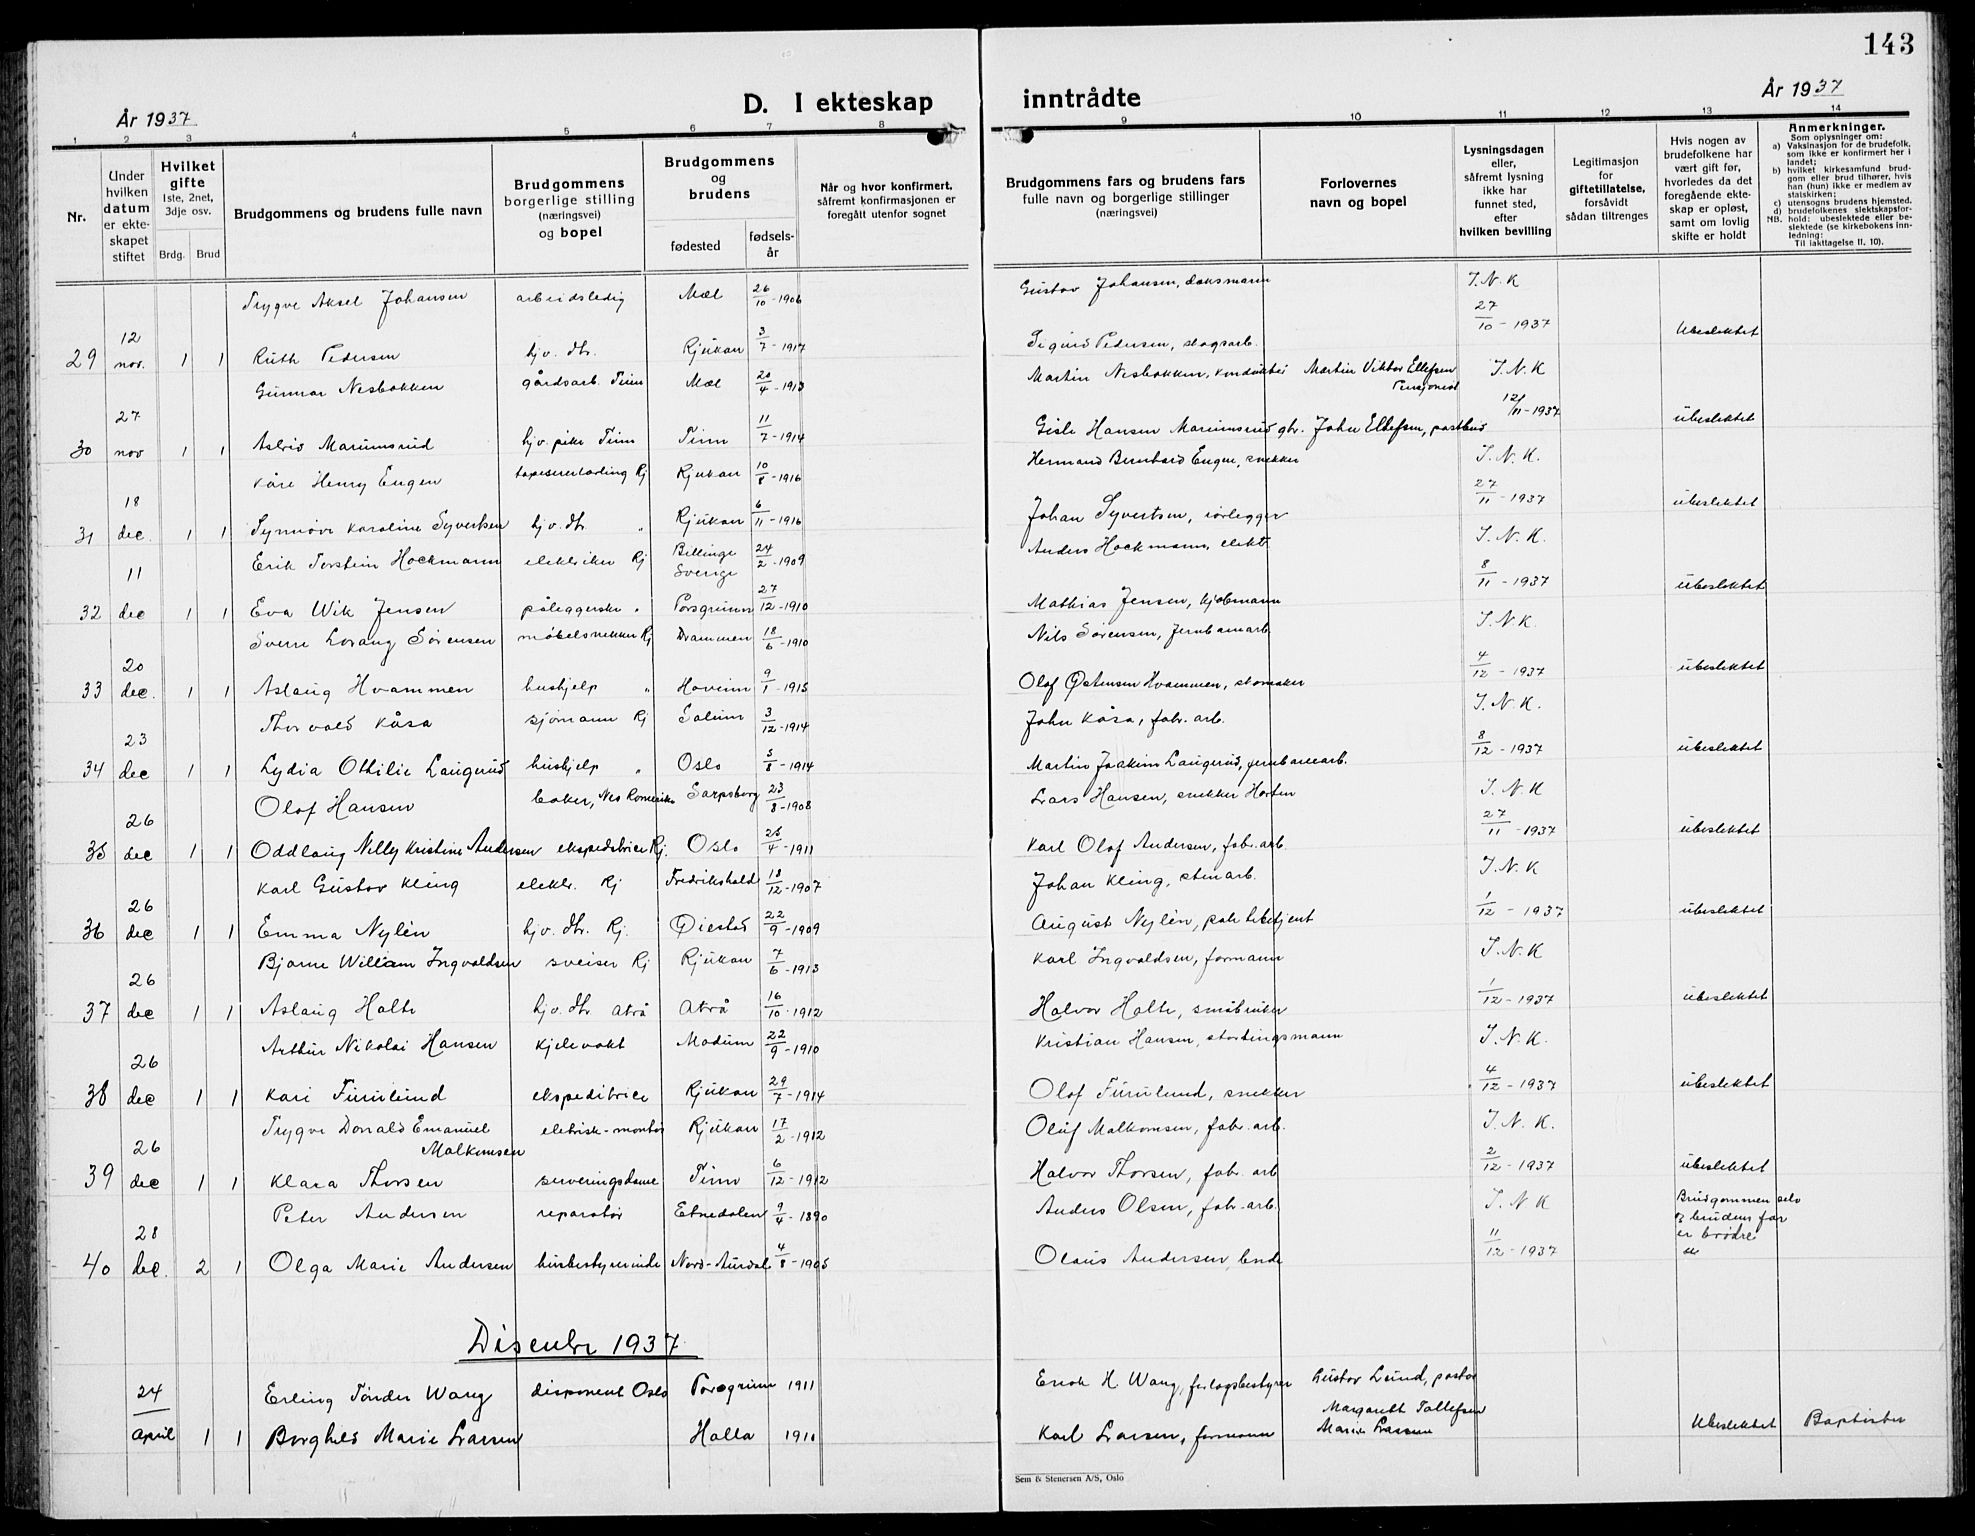 143
År 1937
D. I ekteskap inntrådte
År 1937
1 2 3 4 5 6 7 8 9 10 11 12 13 14
Nr.
Under hvilken datum er ekteskapet stiftet
Hvilket gifte
1ste, 2net, 3dje osv.
Brdg. Brud
Brudgommens og brudens fulle navn
Brudgommens borgerlige stilling (næringsvei) og bopel
Brudgommens og brudens
fødested fødselsår
Når og hvor konfirmert, såfremt konfirmasjonen er foregått utenfor sognet
Brudgommens fars og brudens fars fulle navn og borgerlige stillinger (næringsvei)
Forlovernes navn og bopel
Lysningsdagen eller, såfremt lysning ikke har funnet sted, efter hvilken bevilling
Legitimasjon for giftetillatelse, forsåvidt sådan tiltrenges
Hvis nogen av brudefolkene har vært gift før, hvorledes da det foregående ekteskap er opløst, samt om lovlig skifte er holdt
Anmerkninger.
Som oplysninger om:
a) Vaksinasjon for de brudefolk, som ikke er konfirmert her i landet;
b) hvilket kirkesamfund brudgom eller brud tilhører, hvis han (hun) ikke er medlem av statskirken;
c) utensogns brudens hjemsted.
d) brudefolkenes slektskapsforhold: ubeslektede eller beslektede (se kirkebokens innledning:
NB.
Til iakttagelse II. 10).
Trygve Aksel Johansen arbeidsledig Mæl 26/10-1906 Gustav Johansen, daksmann I.N.K
29 12 nov. 1 1 Ruth Pedersen hjv. dtr. Rjukan 3/7-1917 Sigurd Pedersen, skogsarb. 27/10-1937 Ubeslektet
Gunnar Nesbakken gårdsarb. Tinn Mæl 20/4-1913 Martin Nesbakken, konduktør Martin Viktor Ellefsen Pensjonist I.N.K
30 27 nov 1 1 Astrid Mariumsrud hjv. pike Tinn Tinn 11/7-1914 Gisle Hansen Mariumsrud gbr. John Ellefsen, postbud 12/11-1937 ubeslektet
Kåre Henry Engen tapesererlærling Rj Rjukan 10/8-1916 Hermand Bernhard Engen, snekker I.N.K.
31 18 dec 1 1 Synnøve Karoline Syvertsen hjv. dtr " Rjukan 6/11-1916 Johan Syvertsen, rørlegger 27/11-1937 ubeslektet
Erik Torstein Hockmann elektriker Rj Billinge Sverige 24/2-1909 Anders Hockmann, elektr. I.N.K.
32 11 dec 1 1 Eva Wik Jensen påleggerske " Porsgrunn 27/12-1910 Mathias Jensen, kjøbmann 8/11-1937 ubeslektet
Sverre Lorang Sørensen møbelsnekker Rj Drammen 18/6-1910 Nils Sørensen, Jernbanearb. I.N.K.
33 20 dec. 1 1 Aslaug Hvammen hushjelp " Hovinn 9/1-1915 Olaf Østensen Hvammen, skomaker 4/12-1937 ubeslektet
Thorvald Kåsa sjømann Rj Solum 3/12-1914 John Kåsa, fabr. arb. I.N.K.
34 23 dec 1 1 Lydia Othilie Laugerud hushjelp " Oslo 5/8-1914 Martin Joakim Laugerud, jernbanearb. 8/12-1937 ubeslektet
Olaf Hansen baker, Nes Romerike Sarpsborg 23/8-1908 Lars Hansen, snekker Horten I.N.K
35 26 dec 1 1 Oddlaug Nelly Kristine Andersen ekspeditrice Rj. Oslo 25/4-1911 Karl Olaf Andersen, fabr. arb. 27/11-1937 ubeslektet
Karl Gustav Kling elektr. Rj Fredrikshald 18/12-1907 Johan Kling, stenarb. I.N.K
36 26 dec 1 1 Emma Nylén hjv. dtr. Rj. Øiestad 22/9-1909 August Nylén, politibetjent 1/12-1937 ubeslektet
Bjarne William Ingvaldsen sveiser Rj Rjukan 7/6-1913 Karl Ingvaldsen, formann I.N.K
37 26 dec 1 1 Aslaug Holte hjv. dtr Atrå Atrå 16/10-1912 Halvor Holte, småbruker 1/12-1937 ubeslektet
Arthur Nikolai Hansen kjelevakt Modum 22/9-1910 Kristian Hansen, stortingsmann I.N.K.
38 26 dec 1 1 Kari Furulund ekspeditrice Rjukan 29/7-1914 Olaf Furulund, snekker 4/12-1937 ubeslektet
Trygve Donald Emanuel Malkomsen eletrisk-montør Rjukan 17/2-1912 Oluf Malkomsen, fabr. arb. I.N.K.
39 26 dec 1 1 Klara Thorsen serveringsdame Tinn 6/12-1912 Halvor Thorsen, fabr. arb 2/12-1937 ubeslektet
Peter Andersen reparatør Etnedalen 9/4-1890 Anders Olsen, fabr. arb. I.N.K Brudgommen selv
40 28 dec. 2 1 Olga Marie Andersen husbestyrerinde Nord-Aurdal 4/8-1905 Olaus Andersen, bonde 11/12-1937 og brudens far er brødre
Disenter 1937
Erling Tønder Wang disponent Oslo Porsgrunn 1911 Enok H Wang, forlagsbestyrer Gustav Lund, pastor
24 april 1 1 Borghild Marie Larsen Holla 1911 Karl Larsen, formann Margareth Tollefsen Marie Larsen Ubeslektet Baptister
Sem & Stenersen A/S, Oslo